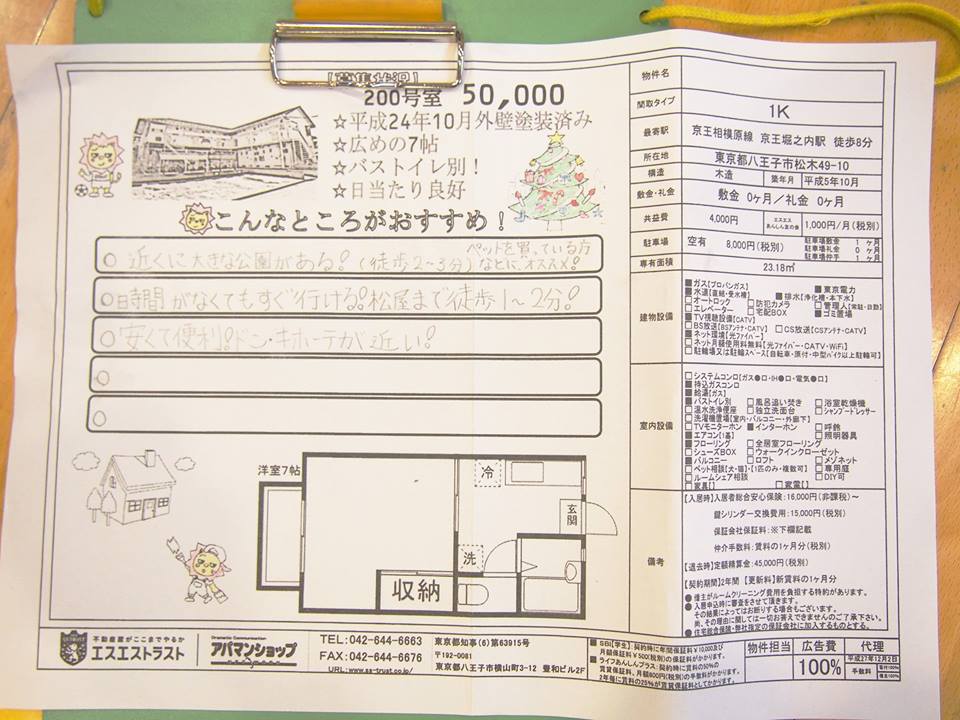 【募集状況】
200号室 50,000
☆平成24年10月外壁塗装済み
☆広めの7帖
☆バストイレ別！
☆日当たり良好
こんなところがおすすめ！
○近くに大きな公園がある！(徒歩2~3分)ペットを買っている方などに、オススメ！
○時間がなくてもすぐ行ける！松屋まで徒歩1~2分！
○安くて便利！ドン・キホーテが近い！
○
○
洋室7帖
冷
玄関
洗
収納
物件名
間取タイプ 1K
最寄駅 京王相模原線 京王堀之内駅 徒歩8分
所在地 東京都八王子市松木49-10
構造 木造 築年月 平成5年10月
敷金・礼金 敷金 0ヶ月／礼金 0ヶ月
共益費 4,000円 エスエスあんしん友の会 1,000円/月(税別)
駐車場 空有 8,000円(税別) 駐車場敷金 1ヶ月
駐車場礼金 0ヶ月
駐車場仲手 1ヶ月
専有面積 23.18㎡
建物設備
■ガス【プロパンガス】 ■東京電力
■水道【直結・受水槽】 ■排水【浄化槽・本下水】
□オートロック □防犯カメラ □管理人【常駐・日勤】
□エレベーター □宅配BOX ■ゴミ置場
■TV視聴設備【CATV】
□BS放送【BSアンテナ・CATV】 □CS放送【CSアンテナ・CATV】
■ネット環境【光ファイバー】
□ネット月額使用料無料【光ファイバー・CATV・WiFi】
□駐輪場又は駐輪スペース【自転車・原付・中型バイク以上駐輪可】
室内設備
□システムコンロ【ガス●口・IH●口・電気●口】
■持込ガスコンロ
■給湯【ガス】
■バストイレ別 □風呂追い焚き □浴室乾燥機
□温水洗浄便座 □独立洗面台 □シャンプードレッサー
□洗濯機置場【室内・バルコニー・外廊下】
□TVモニターホン ■インターホン □呼鈴
■エアコン【1基】 □照明器具
■フローリング □全居室フローリング
□シューズBOX □ウォークインクローゼット
■バルコニー □ロフト □メゾネット
□ペット相談【犬・猫】・【1匹のみ・複数可】 □専用庭
□ルームシェア相談 □DIY可
□家具【】 □家電【】
備考
【入居時】入居者総合安心保険：16,000円(非課税)～
鍵シリンダー交換費用：15,000円(税別)
保証会社保証料：※下欄記載
仲介手数料：賃料の1ヶ月分(税別)
【退去時】定額精算金：45,000円(税別)
【契約期間】2年間 【更新料】新賃料の1ヶ月分
●借主がルームクリーニング費用を負担する特約があります。
●入居申込時に審査をさせて頂きます。
その結果によってはお断りする場合もございます。
尚、その理由に関しては一切お答えできませんのでご了承下さい。
●住宅総合保険・弊社指定の保証会社に加入するものとする。
不動産屋がここまでやるか
エスエストラスト
Dramatic Communication
アパマンショップ
TEL:042-644-6663
FAX:042-644-6676
URL:http://www.ss-trust.co.jp/
東京都知事(6)第63915号
〒192-0081
東京都八王子市横山町3-12 豊和ビル2F
■SBI【学生】：契約時に年間保証料￥10,000及び
月額保証料￥500(税別)の保証料がかかります。
■ライフあんしんプラス：契約時に賃料の50%の
賃貸保証料、月額800円(税別)の手数料がかかります。
2年毎に賃料の25%が賃貸保証料としてかかります。
物件担当 広告費 代理
100% 平成27年12月2日
手数料